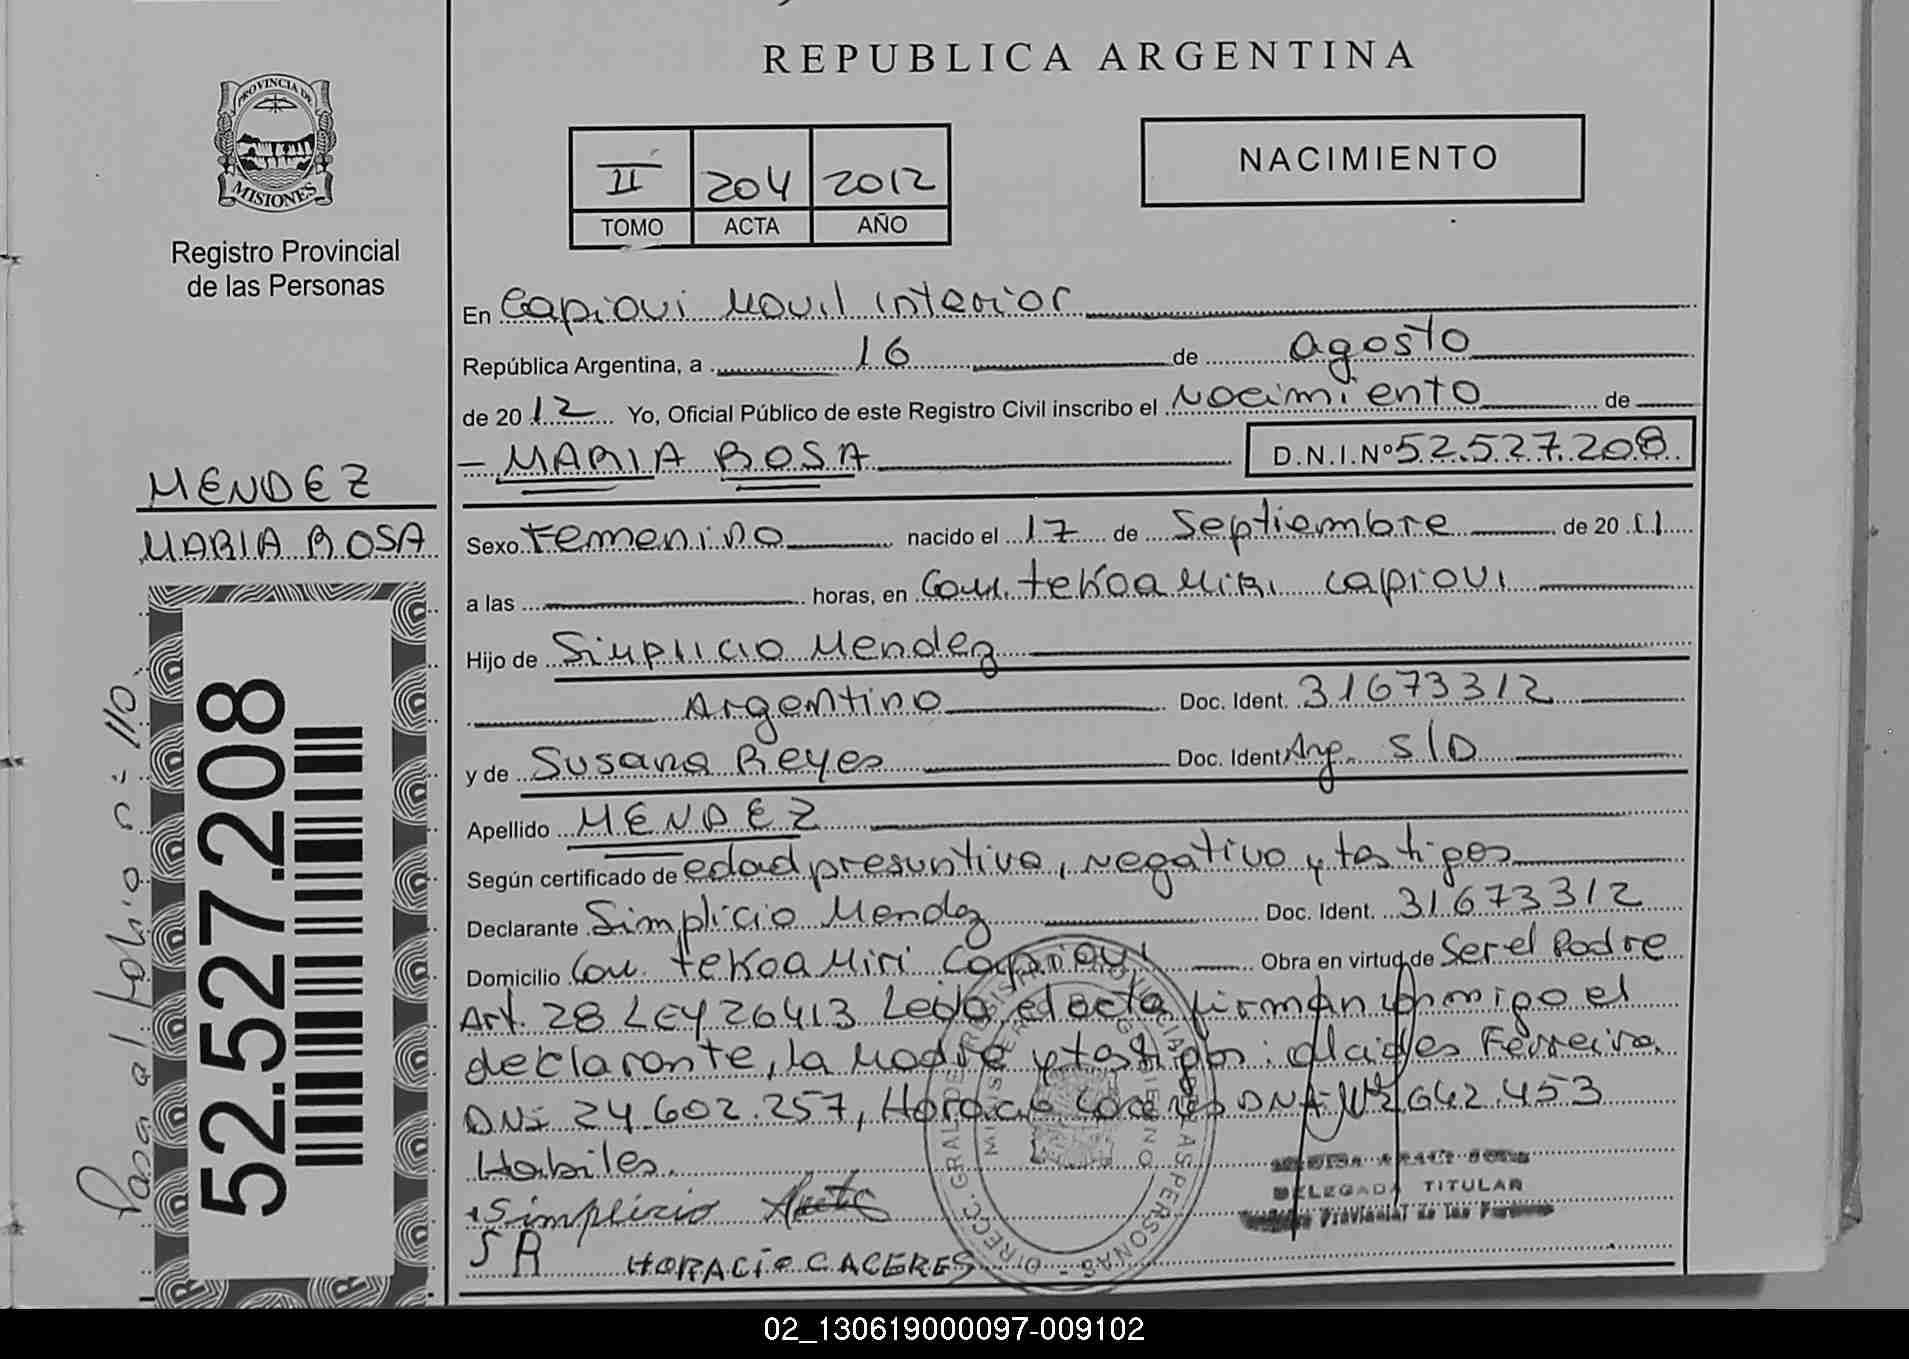 REPUBLICA ARGENTINA
PROVINCIA DE
MISIONES
Registro Provincial
de las Personas
II 204 2012
TOMO ACTA AÑO
NACIMIENTO
En Capiovi Movil interior
República Argentina, a 16 de agosto
de 2012 Yo, Oficial Público de este Registro Civil inscribo el Nacimiento de
- MARIA ROSA D.N.I.Nº 52.527.208
MENDEZ
MARIA ROSA
Sexo Femenino nacido el 17 de Septiembre de 2011
a las horas, en Com. tekoa Miri Capiovi
Hijo de Simplicio Mendez
Argentino Doc. Ident. 31673312
y de Susana Reyes Doc. Ident Arg. S/D
Apellido MENDEZ
Según certificado de edad presuntiva, negativo y testigos
Declarante Simplicio Mendez Doc. Ident. 31673312
Domicilio Com. tekoa Miri Capiovi Obra en virtud de Ser el Padre
Art. 28 LEY 26413 Leida el acta firman conmigo el
declarante, la Madre y testigos: alcides Ferreira
DNI 24.602.257, Horacio Caceres DNI Nº 642.453
Habiles.
Simplicio
SR HORACIO CACERES
DELEGADA TITULAR
Provincial de las Personas
52.527.208
Pasa al folio nº 110
02_130619000097-009102